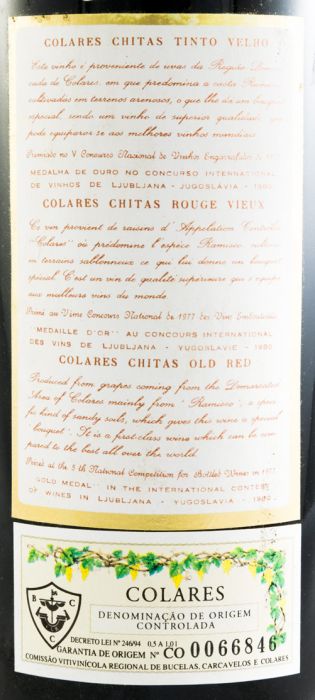 COLARES CHITAS TINTO VELHO
Este vinho é proveniente de uvas da Região Demar
cada de Colares, em que predomina a casta Ramisco
cultivadas em terrenos arenosos, o que lhe dá um bouquet
especial, sendo um vinho de superior qualidade que
pode equiparar se aos melhores vinhos mundiais.
Premiado no V Concurso Nacional de Vinhos Engarrafados de 1977
MEDALHA DE OURO NO CONCURSO INTERNACIONAL
DE VINHOS DE LJUBLJANA - JUGOSLÁVIA - 1980
COLARES CHITAS ROUGE VIEUX
Ce vin provient de raisins d' Appelation Contrôlée
"Colares" où prédomine l'espèce Ramisco, cultivée
in terrains sablonneux ce que lui donne un bouquet
spécial C'est un vin de qualité superieure que s'equipare
aux meilleurs vins du monde
Primé au Vème Concours National de 1977 des Vins Embouteillés
"MEDAILLE D'OR" AU CONCOURS INTERNATIONAL
DES VINS DE LJUBLJANA - YUGOSLAVIE - 1980
COLARES CHITAS OLD RED
Produced from grapes coming from the Demarcated
Area of Colares mainly from "Ramisco", a speci
fic kind of sandy soils, which gives this wine a special
"bouquet". It is a first class wine which can be com
pared to the best all over the world.
Prized at the 5 th National Competition for Bottled Wines in 1977
"GOLD MEDAL" IN THE INTERNATIONAL CONTEST
OF WINES IN LJUBLJANA - YUGOSLAVIA - 1980
B C C
COLARES
DENOMINAÇÃO DE ORIGEM
CONTROLADA
DECRETO LEI Nº 246/94 0,5 A 1,01
GARANTIA DE ORIGEM Nº CO 0066846
COMISSÃO VITIVINÍCOLA REGIONAL DE BUCELAS, CARCAVELOS E COLARES